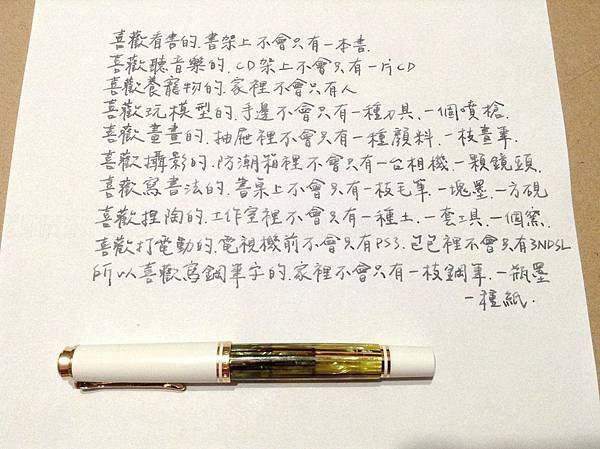 喜歡看書的.書架上不會只有一本書.
喜歡聽音樂的.CD架上不會只有一片CD
喜歡養寵物的.家裡不會只有人
喜歡玩模型的.手邊不會只有一種刀具.一個噴槍.
喜歡畫畫的.抽屜裡不會只有一種顏料.一枝畫筆.
喜歡攝影的.防潮箱裡不會只有一台相機.一顆鏡頭.
喜歡寫書法的.書桌上不會只有一枝毛筆.一塊墨.一方硯
喜歡捏陶的.工作室裡不會只有一種土.一套工具.一個窯.
喜歡打電動的.電視機前不會只有PS3.包包裡不會只有3NDSL
所以喜歡寫鋼筆字的.家裡不會只有一枝鋼筆.一瓶墨
一種紙.